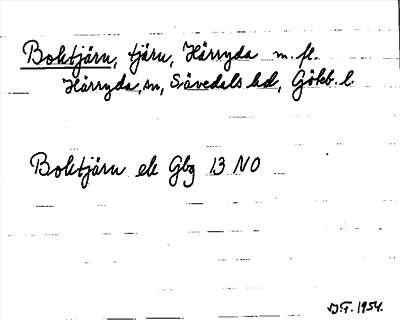 Boktjärn, tjärn, Härryda m. fl.
Härryda sn, Sävedals hd, Götb. l.
Boktjärn ek Gbg 13 NO
J.F. 1954.